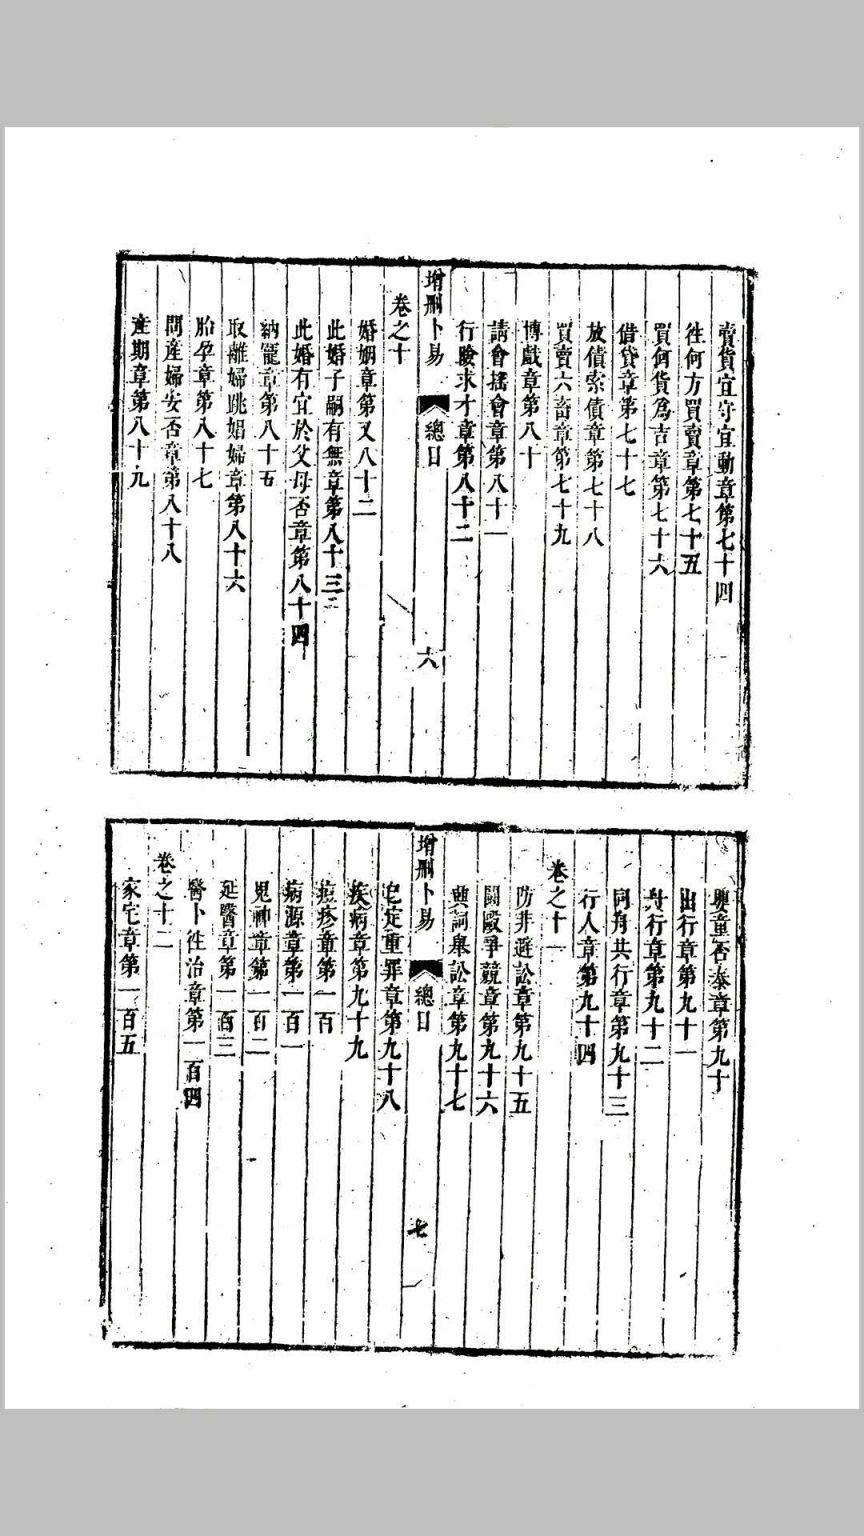 賣貨宜守宜動章第七十四
徃何方買賣章第七十五
買何貨爲吉章第七十六
借貸章第七十七
放債索債章第七十八
買賣六畜章第七十九
博戲章第八十
請會搖會章第八十一
行險求才章第八十二
增刪卜易 總目 六
卷之十
婚姻章第又八十二
此婚子嗣有無章第八十三
此婚有宜於父母否章第八十四
納寵章第八十五
取離婦跳娼婦章第八十六
胎孕章第八十七
問産婦安否章第八十八
産期章第八十九
嬰童否泰章第九十
出行章第九十一
舟行章第九十二
同舟共行章第九十三
行人章第九十四
卷之十一
防非避訟章第九十五
鬭毆爭競章第九十六
興詞舉訟章第九十七
增刪卜易 總目 七
已定重罪章第九十八
疾病章第九十九
痘疹章第一百
病源章第一百一
鬼神章第一百二
延醫章第一百三
醫卜徃治章第一百四
卷之十二
家宅章第一百五